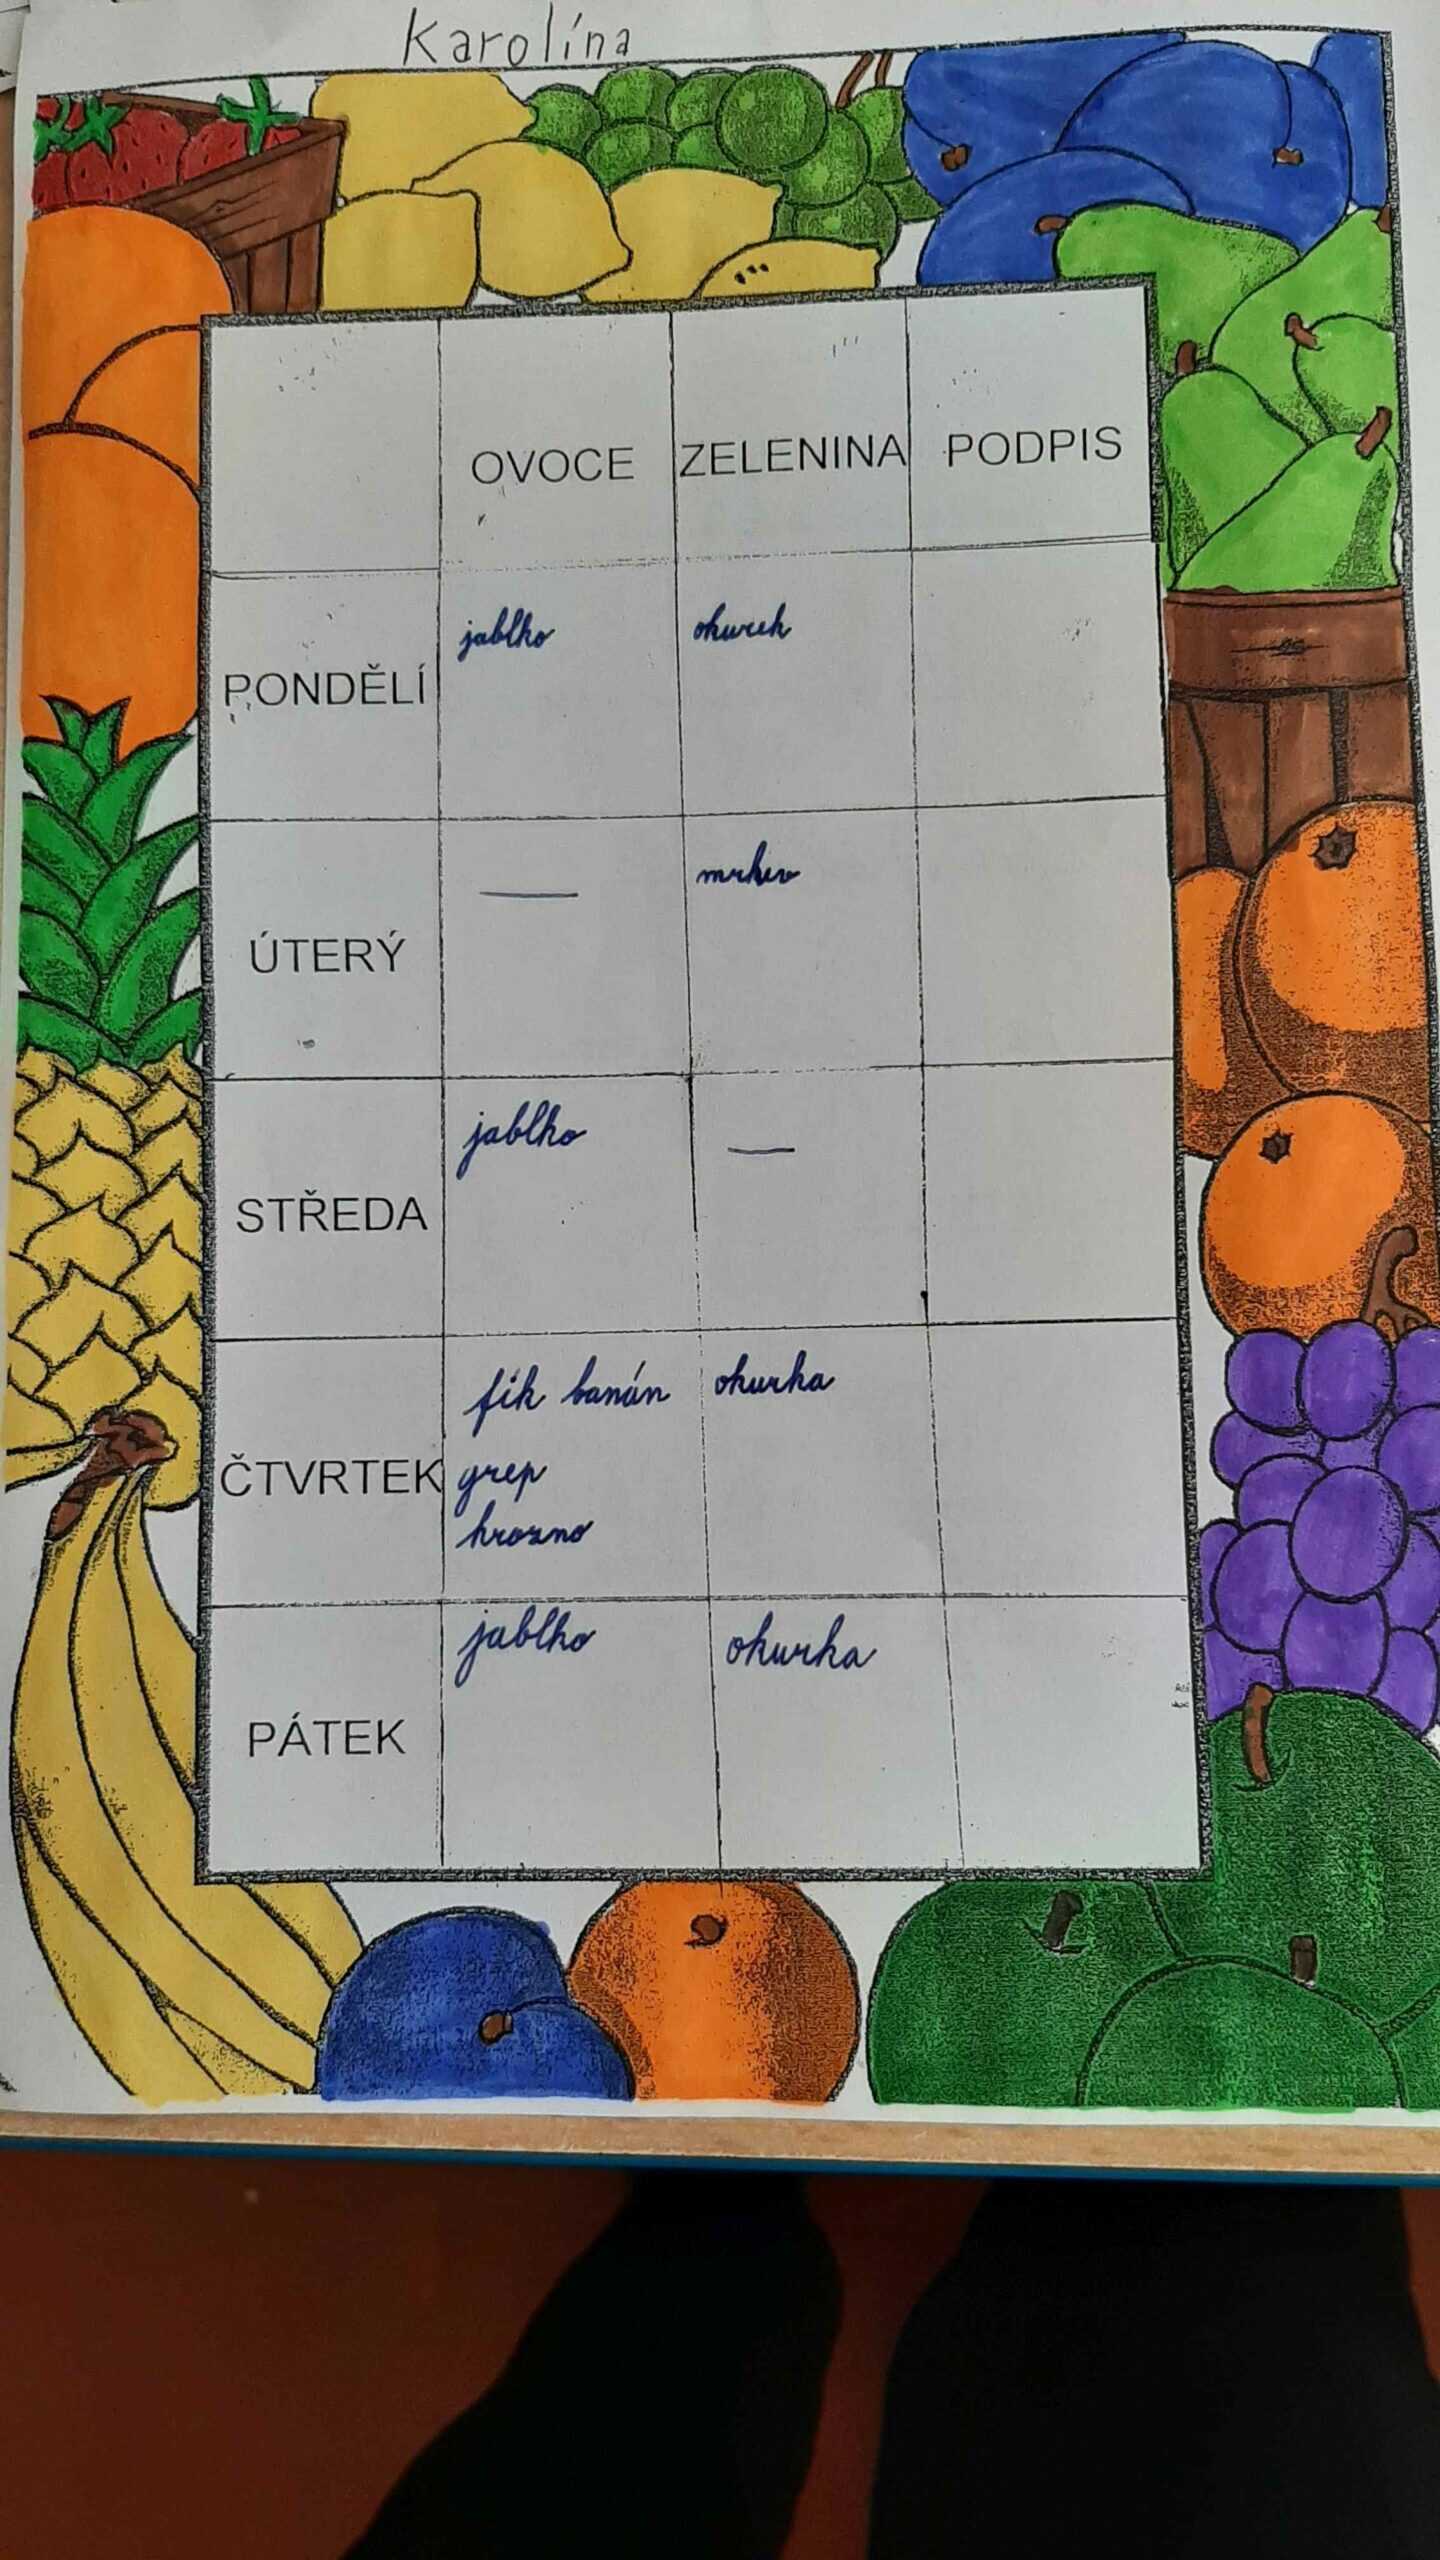 Karolína
OVOCE ZELENINA PODPIS
PONDĚLÍ jablko okurek
ÚTERÝ — mrkev
STŘEDA jablko —
ČTVRTEK fík banán okurka
grep
hrozno
PÁTEK jablko okurka